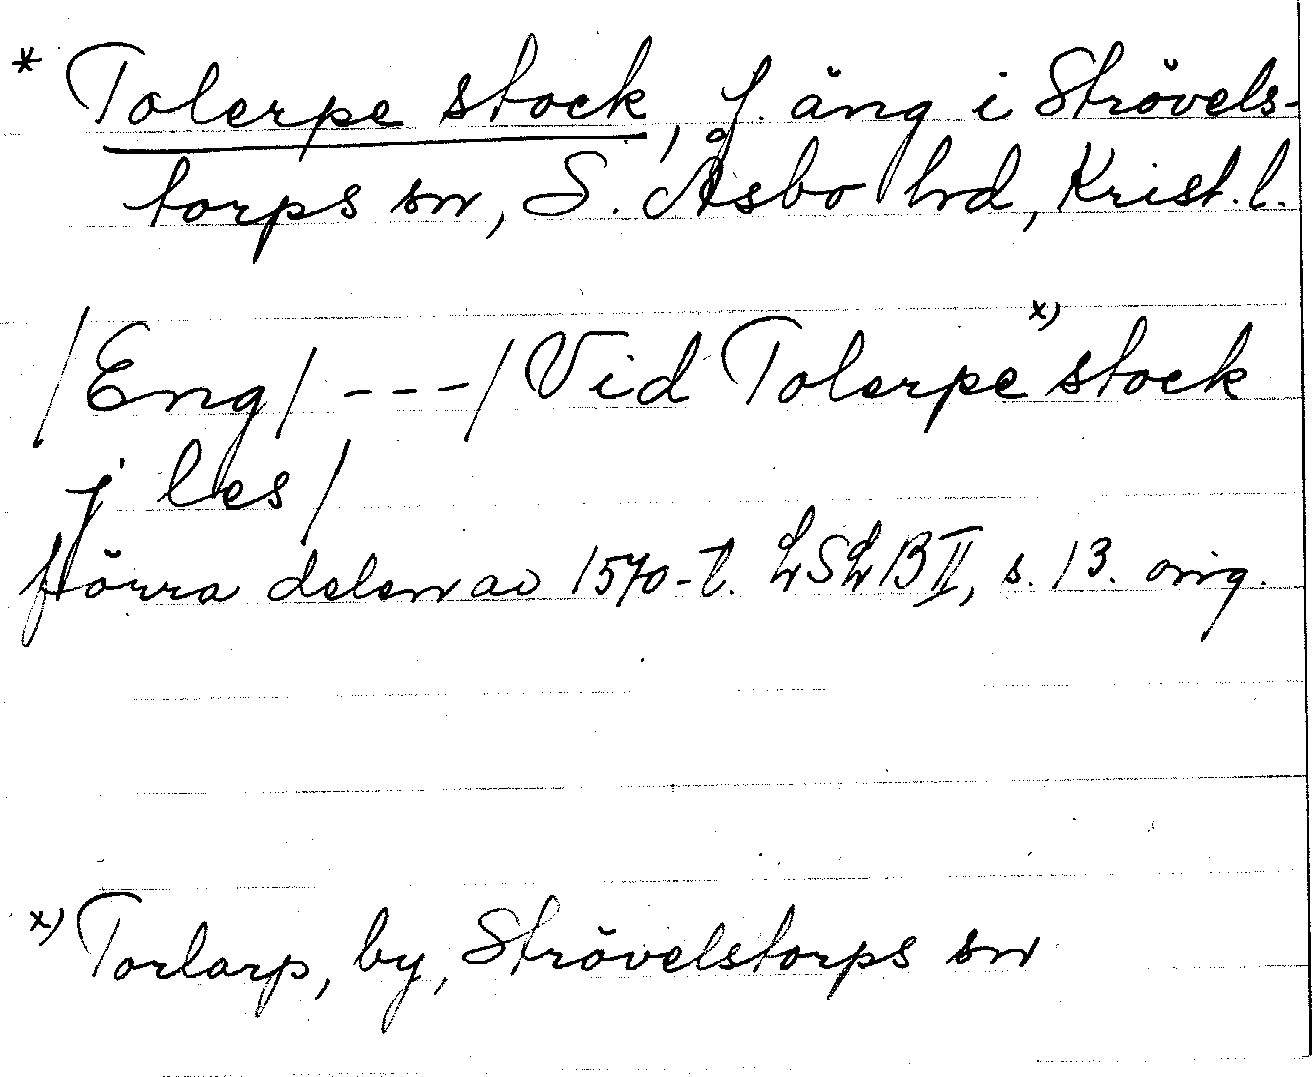 * Tolerpe stock, f. äng i Strövels-
torps sn, S. Åsbo hd, Krist. l.
/Eng/ ---/ Vid Tolerpe x) stock
j les/
förra delen av 1570-t. LSLB II, s. 13. orig.
x) Torlarp, by, Strövelstorps sn